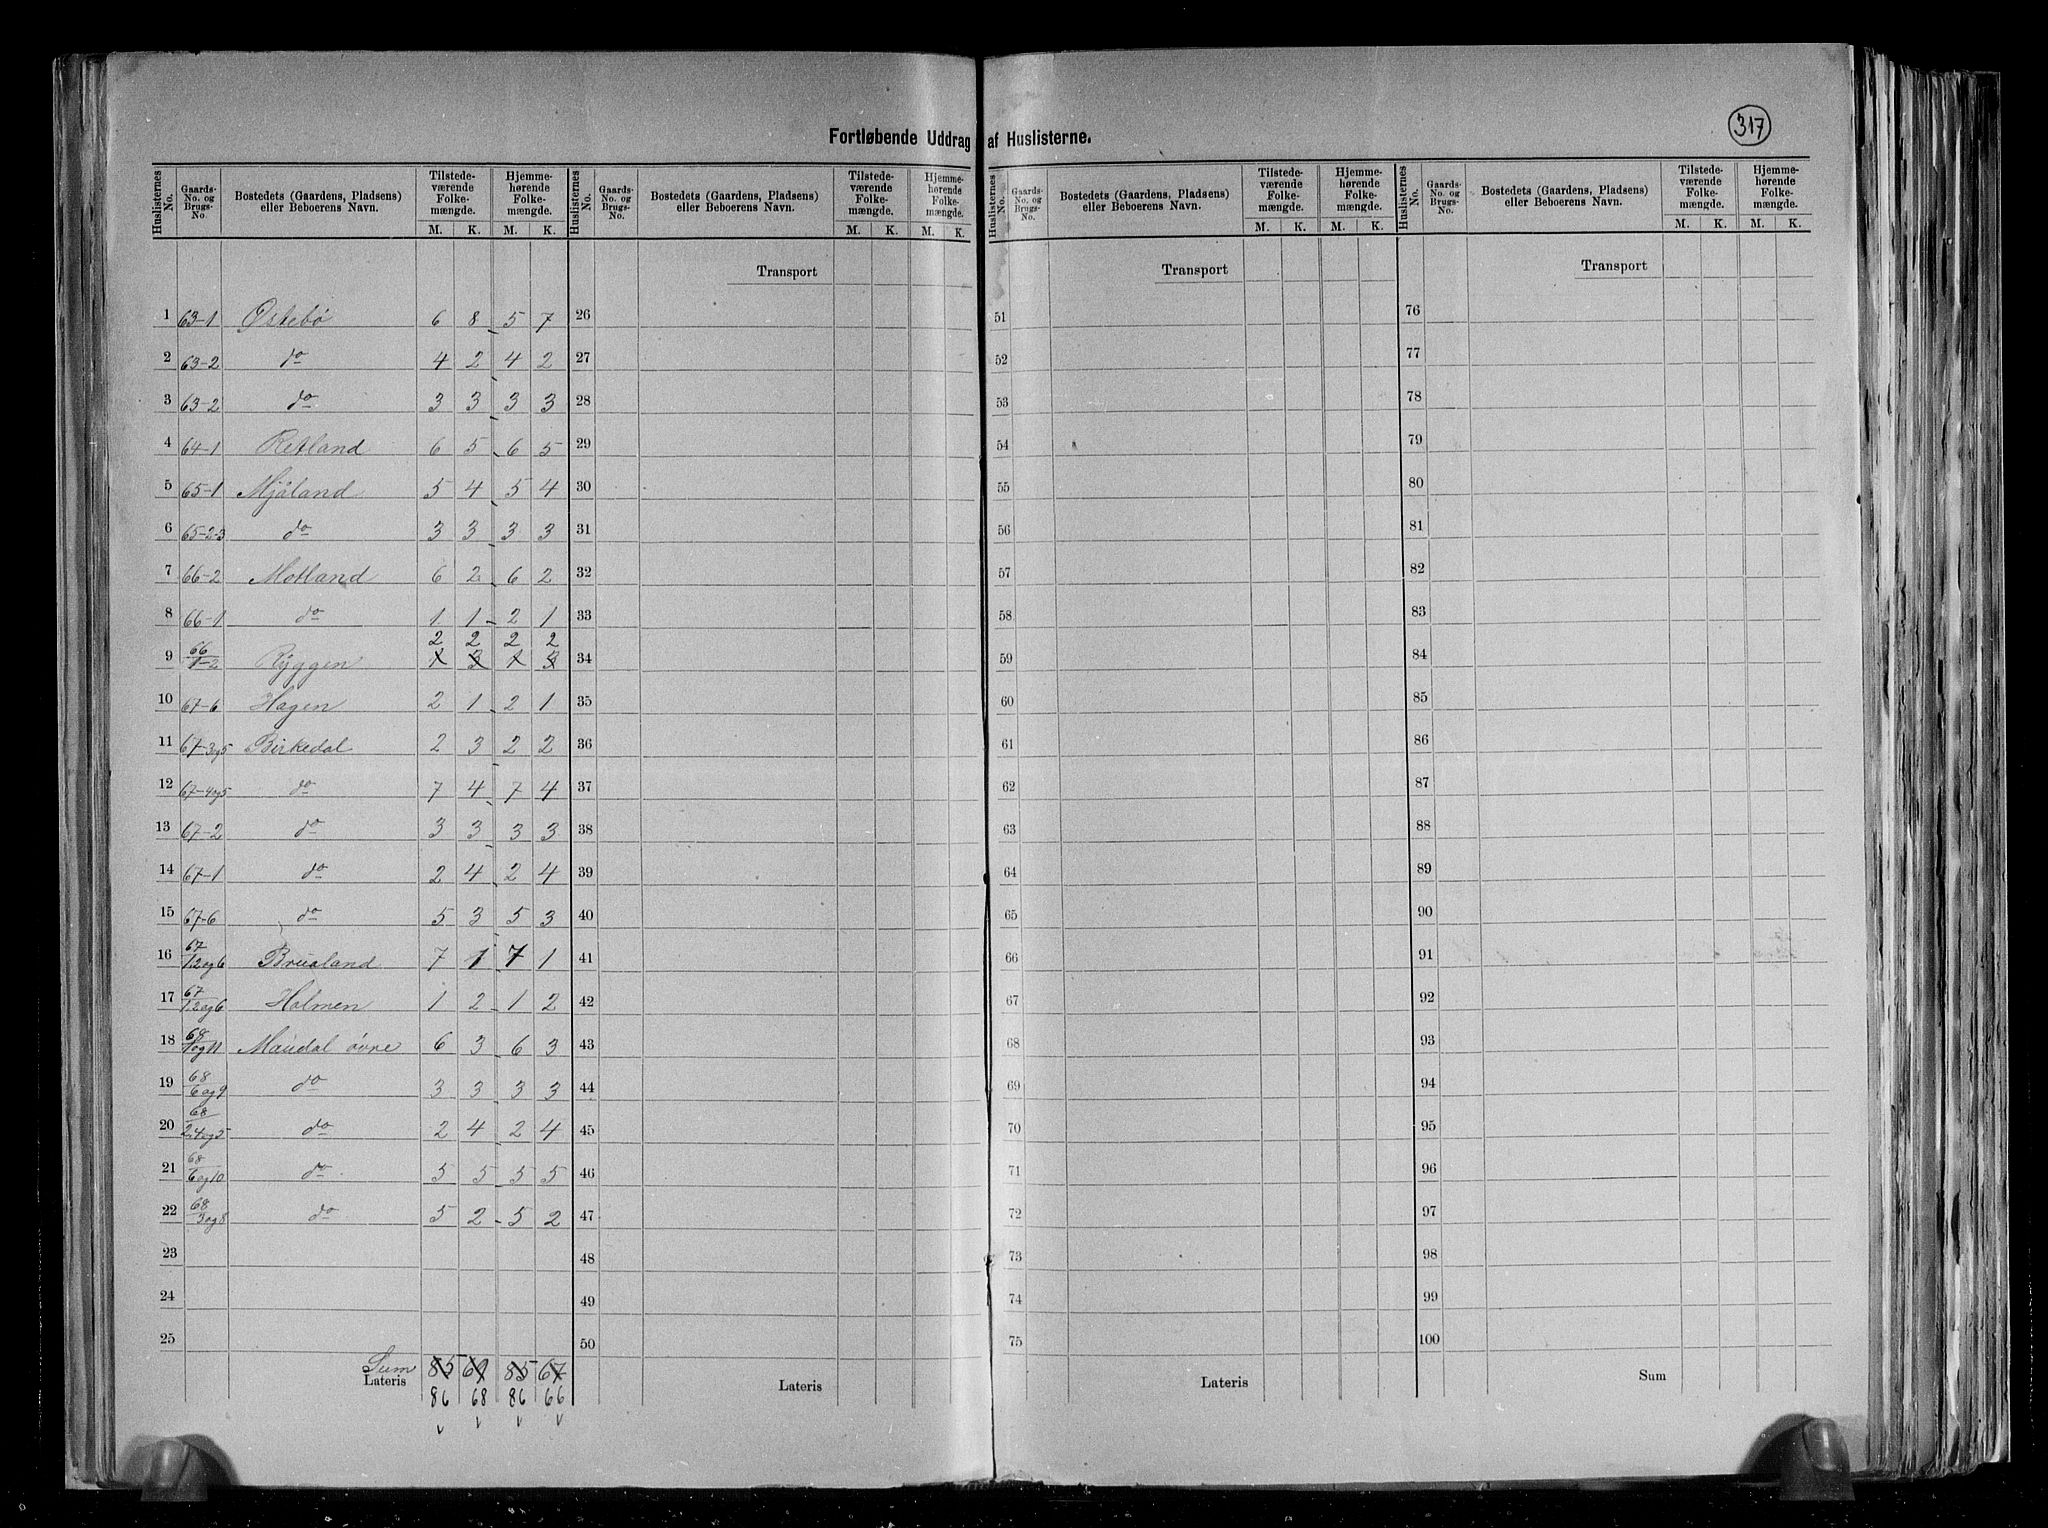 317
Fortløbende Uddrag af Huslisterne.
Huslisternes No. Gaards-No. og Brugs-No. Bostedets (Gaardens, Pladsens) eller Beboerens Navn. Tilstedeværende Folkemængde. M. K. Hjemmehørende Folkemængde. M. K.
Huslisternes No. Gaards-No. og Brugs-No. Bostedets (Gaardens, Pladsens) eller Beboerens Navn. Tilstedeværende Folkemængde. M. K. Hjemmehørende Folkemængde. M. K.
Huslisternes No. Gaards-No. og Brugs-No. Bostedets (Gaardens, Pladsens) eller Beboerens Navn. Tilstedeværende Folkemængde. M. K. Hjemmehørende Folkemængde. M. K.
Huslisternes No. Gaards-No. og Brugs-No. Bostedets (Gaardens, Pladsens) eller Beboerens Navn. Tilstedeværende Folkemængde. M. K. Hjemmehørende Folkemængde. M. K.
Transport Transport Transport
1 63-1 Østebö 6 8 5 7 26 51 76
2 63-2 do 4 2 4 2 27 52 77
3 63-2 do 3 3 3 3 28 53 78
4 64-1 Retland 6 5 6 5 29 54 79
5 65-1 Mjåland 5 4 5 4 30 55 80
6 65-2-3 do 3 3 3 3 31 56 81
7 66-2 Motland 6 2 6 2 32 57 82
8 66-1 do 1 1 2 1 33 58 83
2 2 2 2
9 66/1-2 Ryggen 1 3 1 3 34 59 84
10 67-6 Hagen 2 1 2 1 35 60 85
11 67-3og5 Birkedal 2 3 2 2 36 61 86
12 67-4og5 do 7 4 7 4 37 62 87
13 67-2 do 3 3 3 3 38 63 88
14 67-1 do 2 4 2 4 39 64 89
15 67-6 do 5 3 5 3 40 65 90
16 67/1.2og6 Brualand 7 1 7 1 41 66 91
17 67/1.2og6 Holmen 1 2 1 2 42 67 92
18 68/1og11 Maudal övre 6 3 6 3 43 68 93
19 68/6og9 do 3 3 3 3 44 69 94
20 68/2.4og5 do 2 4 2 4 45 70 95
21 68/6og10 do 5 5 5 5 46 71 96
22 68/3og8 do 5 2 5 2 47 72 97
23 48 73 98
24 49 74 99
25 50 75 100
Sum 85 69 85 67
Lateris Lateris Lateris Sum
86 68 86 66